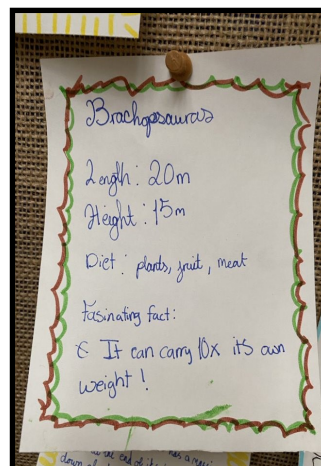 Brachoposauras
Length: 20m
Height: 15m
Diet: plants, fruit, meat
Fasinating fact:
It can carry 10x its own
weight!